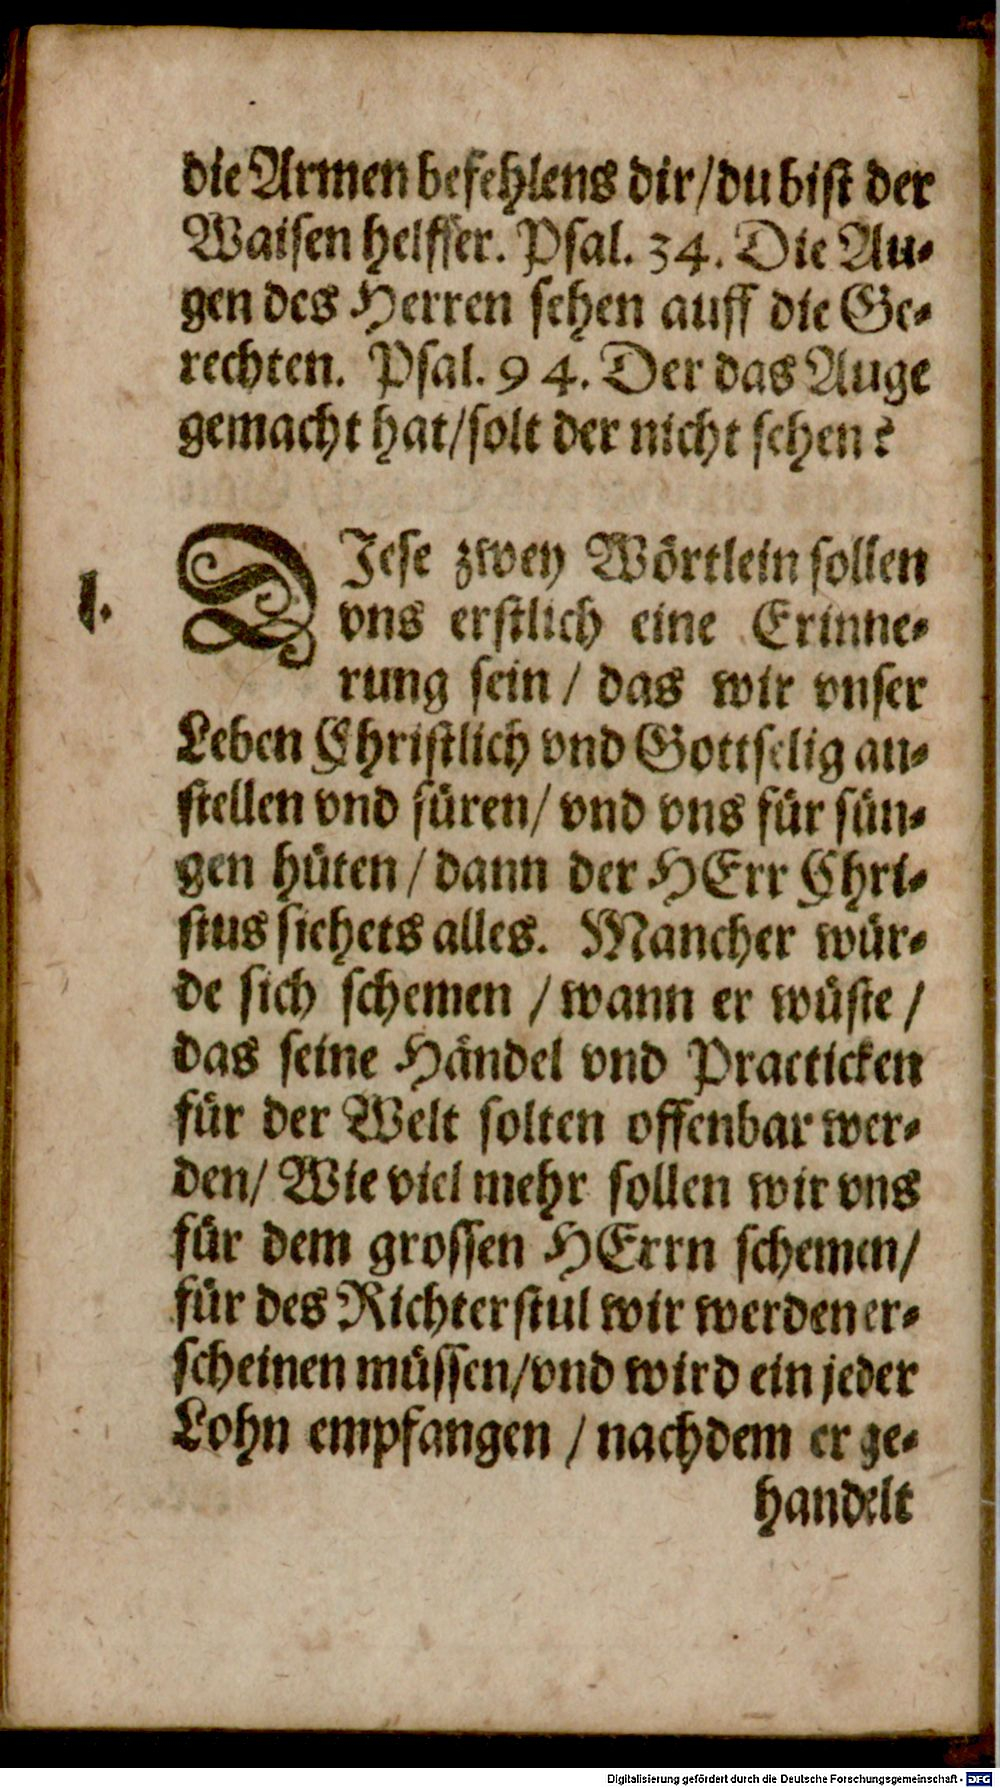 die Armen befehlens dir/du bist der
Waisen helffer. Psal. 34. Die Au-
gen des Herren sehen auff die Ge-
rechten. Psal. 94. Der das Auge
gemacht hat/solt der nicht sehen?
I.
DIese zwey Wörtlein sollen
vns erstlich eine Erinne-
rung sein / das wir vnser
Leben Christlich vnd Gottselig an-
stellen vnd füren/ vnd vns für sün-
gen hüten / dann der HErr Chri-
stus sichets alles. Mancher wür-
de sich schemen / wann er wüste /
das seine Händel vnd Practicken
für der Welt solten offenbar wer-
den/ Wie viel mehr sollen wir vns
für dem grossen HErrn schemen/
für des Richterstul wir werden er-
scheinen müssen/vnd wird ein jeder
Lohn empfangen / nachdem er ge-
handelt
Digitalisierung gefördert durch die Deutsche Forschungsgemeinschaft - DFG